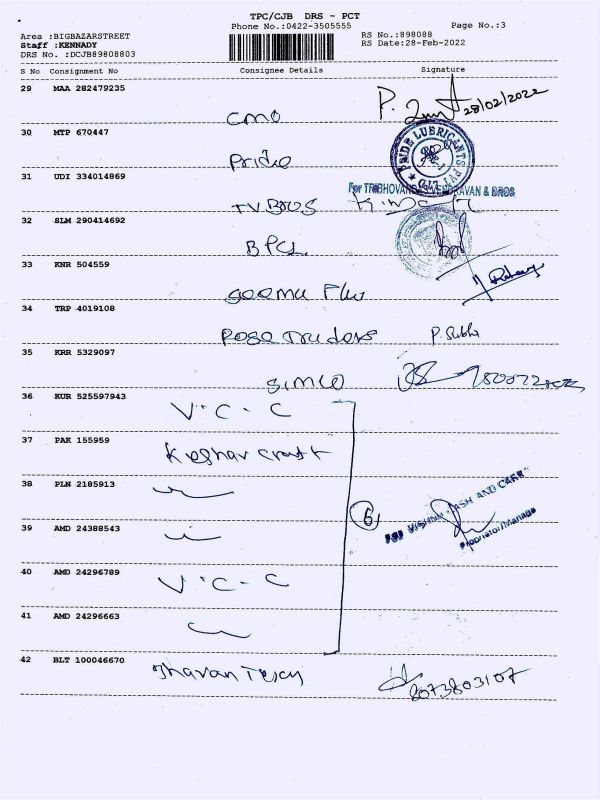 TPC/CJB DRS - PCT
Phone No.:0422-3505555
Page No.:3
Area :BIGBAZARSTREET
Staff :KENNADY
DRS No. :DCJB89808803
RS No.:898088
RS Date:28-Feb-2022
S No Consignment No Consignee Details Signature
29 MAA 282479235
CMO P. 28/02/2022
30 MTP 670447
Pride
PRIDE LUBRICANTS PVT LTD
31 UDI 334014869
For TRIBHOVANDAS VENDRAVAN & BROS
TV.BROS
32 SLM 290414692
BPCL
33 KNR 504559
Seema Flu
34 TRP 4019108
P. Subha
35 KRR 5329097
SIMCO
36 KUR 525597943
V.C.C
37 PAK 155959
Keshav craft
38 PLN 2185913
6
For VISHNU CASH AND CARRY
Proprietor/Manager
39 AMD 24388543
40 AMD 24296789
V.C.C
41 AMD 24296663
42 BLT 100046670
8073803107